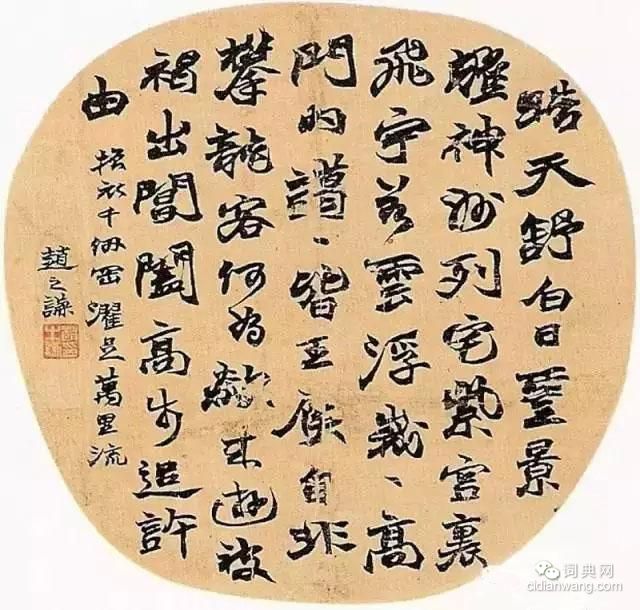 皓天舒白日靈景
耀神州列宅紫宮裏
飛宇若雲浮峩、高
門內藹、皆王侯自非
攀龍客何為欻來遊被
褐出閶闔高步追許
由 振衣千仞岡濯足萬里流
趙之謙
词典网
cidianwang.com